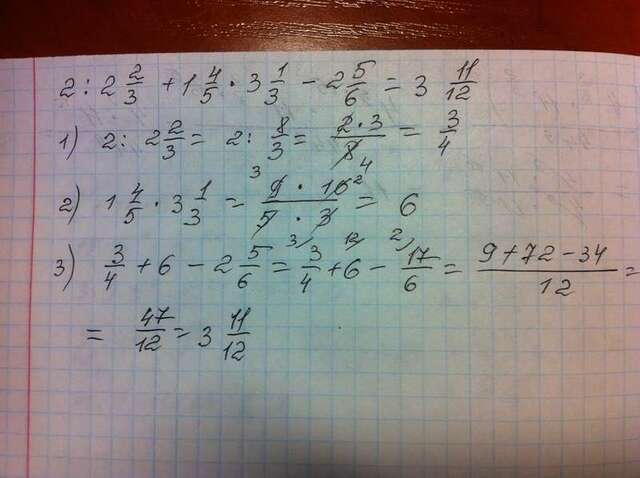 2 : 2 2/3 + 1 4/5 · 3 1/3 - 2 5/6 = 3 11/12
1) 2 : 2 2/3 = 2 : 8/3 = 2·3/8 4 = 3/4
2) 1 4/5 · 3 1/3 = 3 9 · 10 2/5 · 3 = 6
3) 3/4 + 6 - 2 5/6 = 3/4 3 + 6 12 - 17/6 2 = 9+72-34/12 =
= 47/12 = 3 11/12